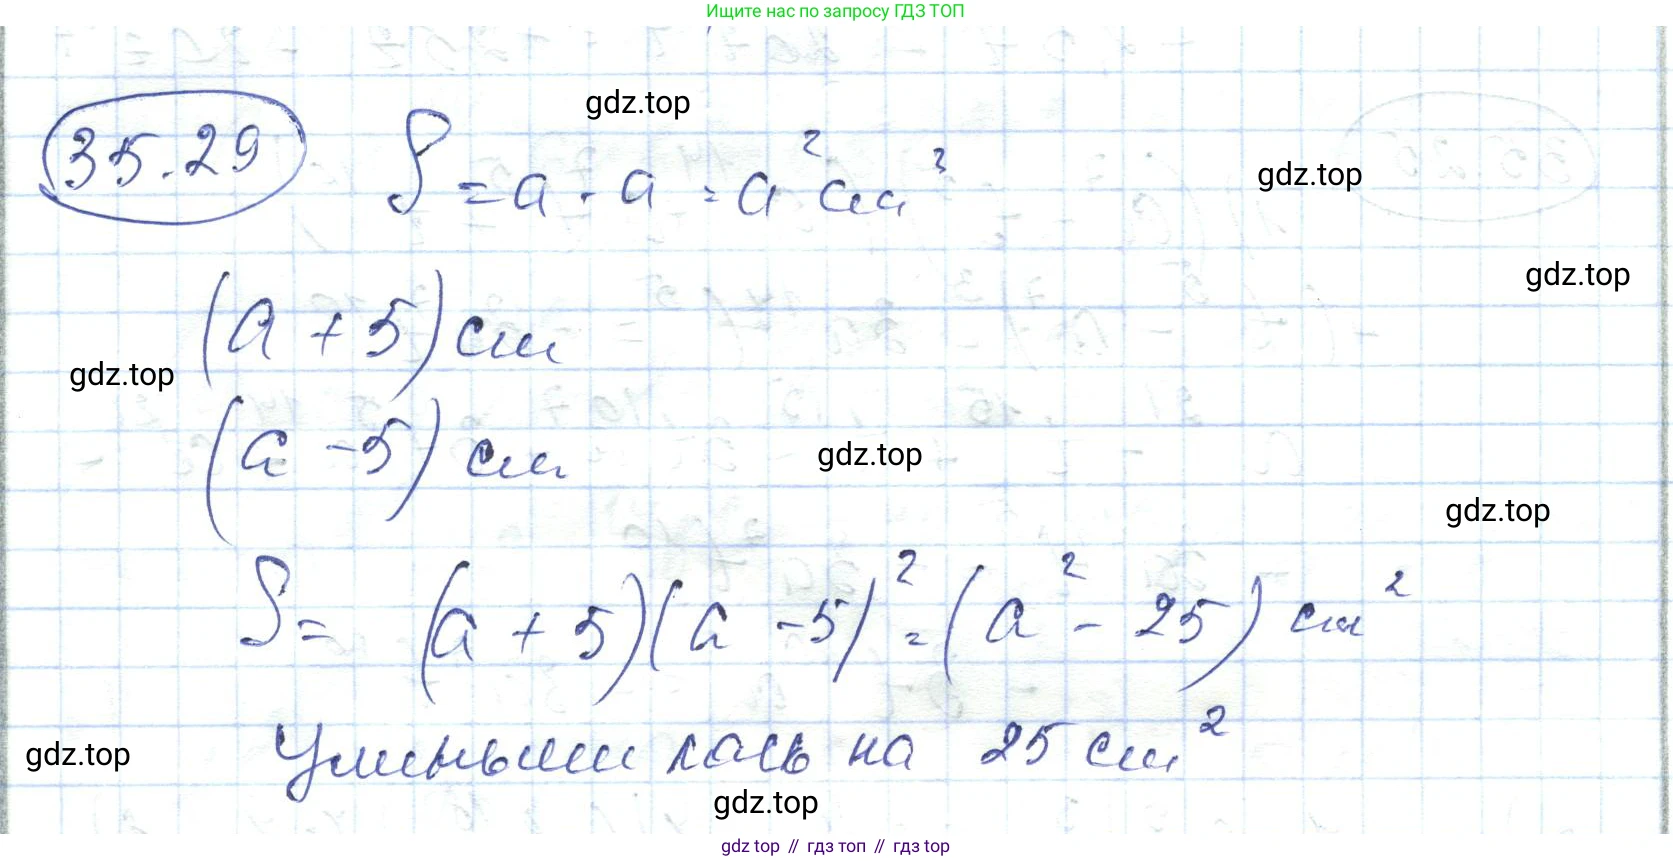 Ищите нас по запросу ГДЗ ТОП
gdz.top
35.29 S = a · a = a² см²
gdz.top
gdz.top
(a + 5) см
gdz.top
(a - 5) см
gdz.top
gdz.top
S = (a + 5)(a - 5)² = (a² - 25) см²
Уменьшилась на 25 см²
gdz.top
gdz.top
gdz top // гдз топ // гдз top